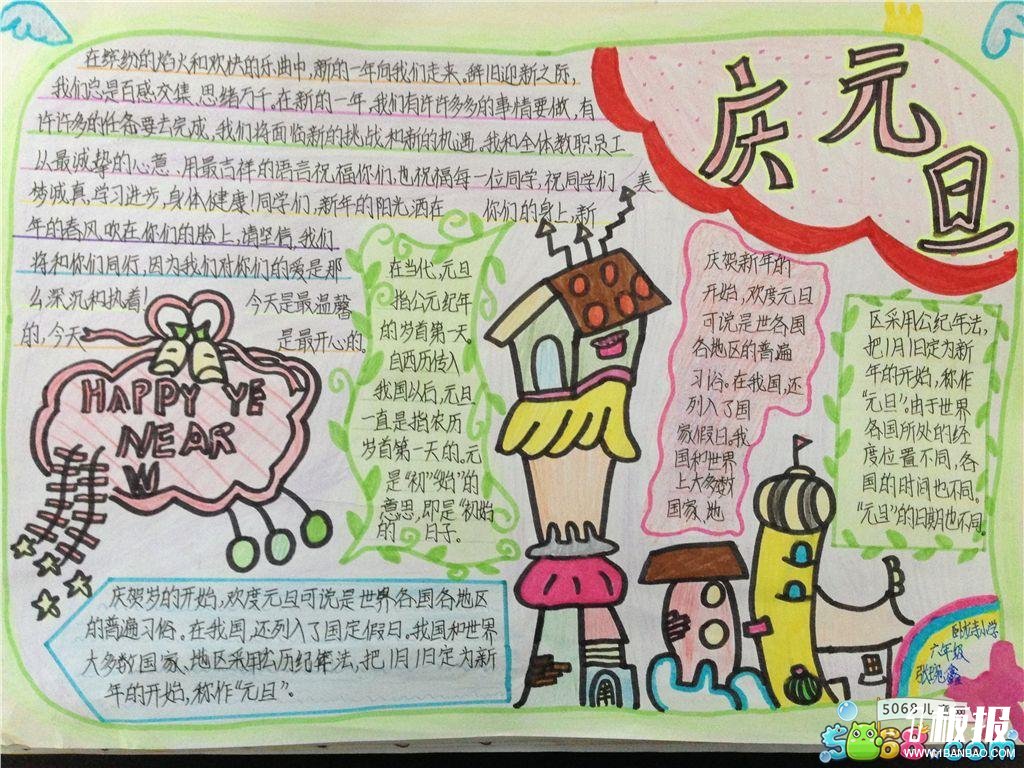 庆元旦
在缤纷的焰火和欢快的乐曲中,新的一年向我们走来。辞旧迎新之际,
我们总是百感交集,思绪万千。在新的一年,我们有许许多多的事情要做,有
许许多的任务要去完成,我们将面临新的挑战和新的机遇。我和全体教职员工
以最诚挚的心意、用最吉祥的语言祝福你们,也祝福每一位同学,祝同学们 美
梦诚真,学习进步,身体健康!同学们,新年的阳光洒在 你们的身上,新
年的春风吹在你们的脸上,请坚信,我们
将和你们同行,因为我们对你们的爱是那
么深沉和执着! 今天是最温馨
的,今天 是最开心的。
HAPPY YE
NEAR
W
在当代,元旦
指公元纪年
的岁首第一天。
自西历传入
我国以后,元旦
一直是指农历
岁首第一天的。元
是“初”“始”的
意思,即是“初始
的 日子。
庆贺新年的
开始,欢度元旦
可说是世各国
各地区的普遍
习俗。在我国,还
列入了国
家假日。我
国和世界
上大多数
国家、地
区采用公纪年法,
把1月1日定为新
年的开始,称作
“元旦”。由于世界
各国所处的经
度位置不同,各
国的时间也不同。
“元旦”的日期也不同
庆贺岁的开始,欢度元旦可说是世界各国各地区
的普遍习俗。在我国,还列入了国定假日。我国和世界
大多数国家、地区采用公历纪年法,把1月1日定为新
年的开始,称作“元旦”。
六年级
5068儿童网
板报
WWW.1BANBAO.COM